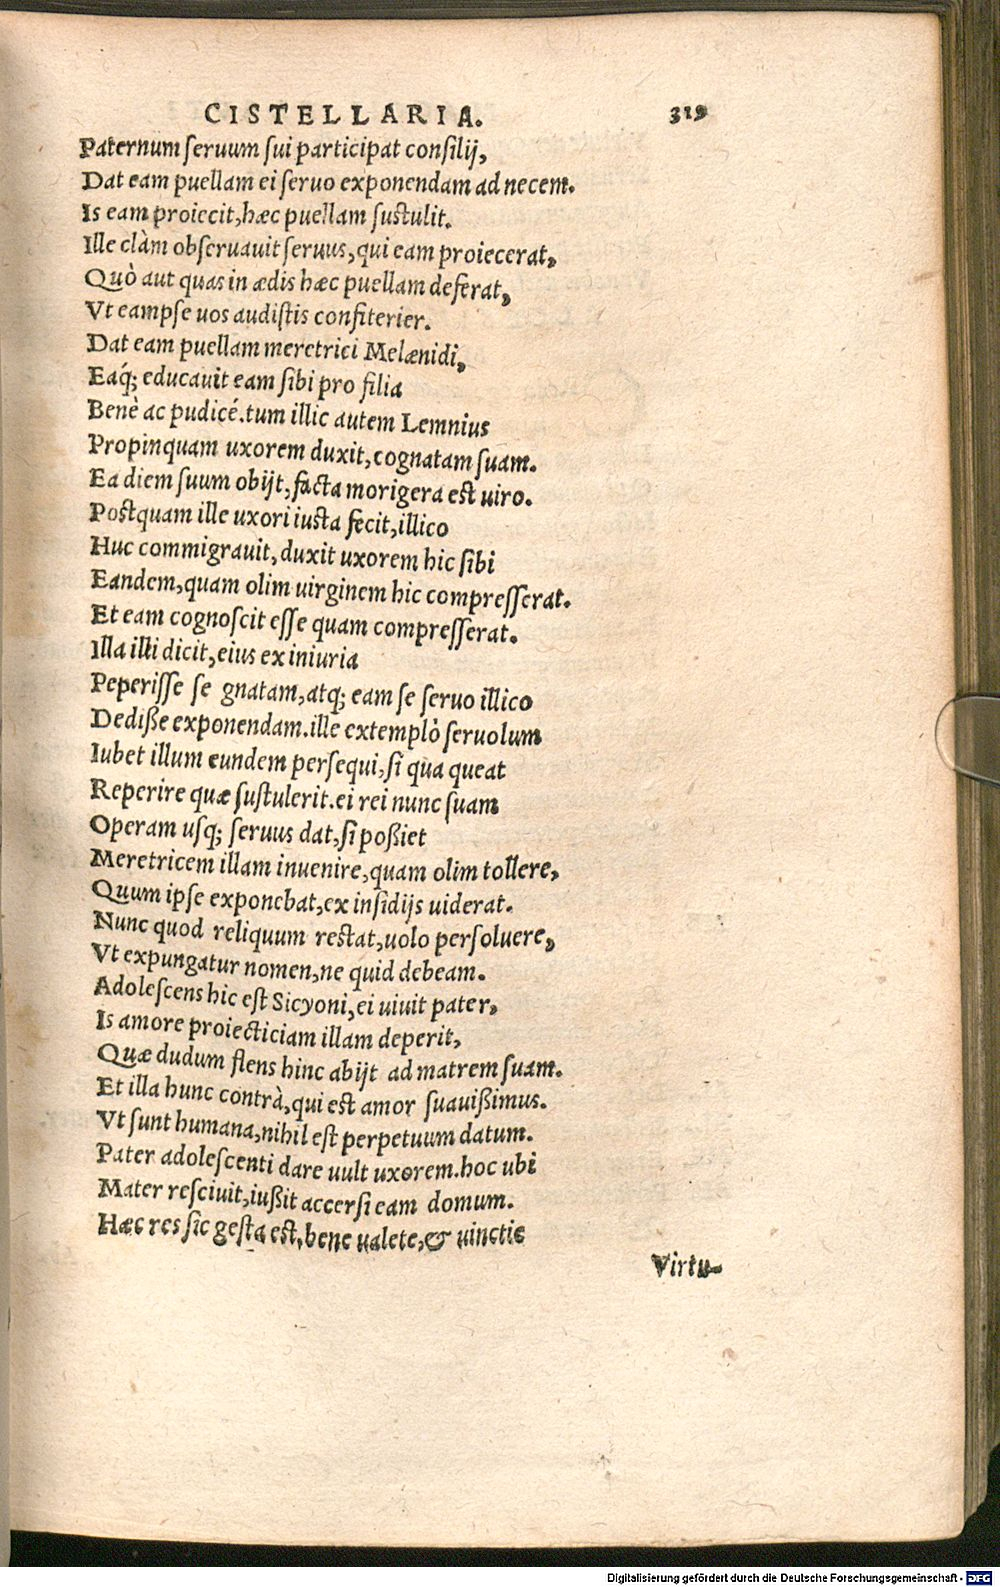 CISTELLARIA. 319
Paternum seruum sui participat consilij,
Dat eam puellam ei seruo exponendam ad necem.
Is eam proiecit, hæc puellam sustulit.
Ille clàm obseruauit seruus, qui eam proiecerat,
Quò aut quas in ædis hæc puellam deferat,
Vt eampse uos audistis confiterier.
Dat eam puellam meretrici Melænidi,
Eaq́; educauit eam sibi pro filia
Benè ac pudicé. tum illic autem Lemnius
Propinquam uxorem duxit, cognatam suam.
Ea diem suum obijt, facta morigera est uiro.
Postquam ille uxori iusta fecit, illico
Huc commigrauit, duxit uxorem hic sibi
Eandem, quam olim uirginem hic compresserat.
Et eam cognoscit esse quam compresserat.
Illa illi dicit, eius ex iniuria
Peperisse se gnatam, atq; eam se seruo illico
Dediße exponendam. ille extemplò seruolum
Iubet illum eundem persequi, si qua queat
Reperire quæ sustulerit. ei rei nunc suam
Operam usq; seruus dat, si poßiet
Meretricem illam inuenire, quam olim tollere,
Quum ipse exponebat, ex insidijs uiderat.
Nunc quod reliquum restat, uolo persoluere,
Vt expungatur nomen, ne quid debeam.
Adolescens hic est Sicyoni, ei uiuit pater,
Is amore proiecticiam illam deperit,
Quæ dudum flens hinc abijt ad matrem suam.
Et illa hunc contrà, qui est amor suauißimus.
Vt sunt humana, nihil est perpetuum datum.
Pater adolescenti dare uult uxorem. hoc ubi
Mater resciuit, iußit accersi eam domum.
Hæc res sic gesta est, bene ualete, & uincite
Virtu-
Digitalisierung gefördert durch die Deutsche Forschungsgemeinschaft - DFG